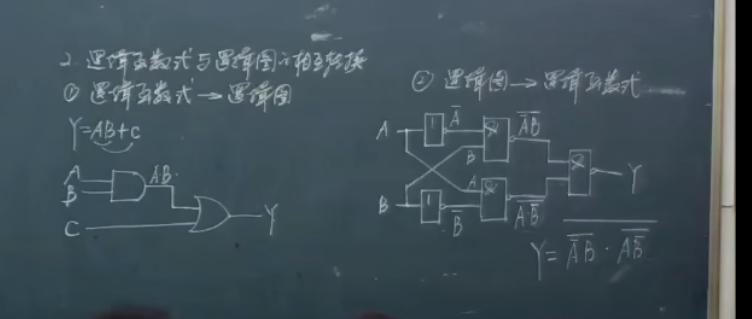 2. 逻辑函数式与逻辑图的相互转换
① 逻辑函数式→逻辑图
Y=AB+C
A
B
AB
C
Y
② 逻辑图→逻辑函数式
A
1
A̅
&
B
A̅B̅
&
Y
B
1
B̅
A
&
A̅·̅B̅
Y = A̅B̅ · A̅B̅